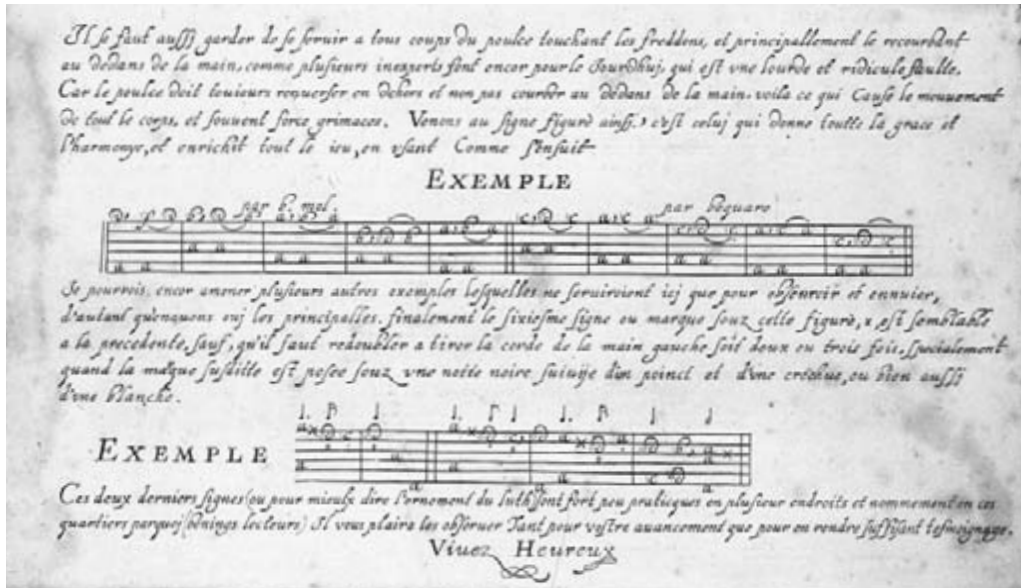 Il se faut aussj garder de se seruir a tous coups du poulce touchant les freddons, et principallement le recourbant
au dedans de la main, comme plusieurs inexperts font encor pour le Jourdhuj, qui est vne lourde et ridicule faulte.
Car le poulce doit tousiours renuerser en dehors et non pas courber au dedans de la main. voila ce qui Cause le mouuement
de tout le corps, et souuent force grimaces. Venons au signe figuré ainsi, c'est celuj qui donne toutte la grace et
l'harmonye, et enrichit tout le ieu, en vsant Comme s'ensuit
EXEMPLE
par b mol. par bequare
Je pourrois, encor amener plusieurs autres exemples lesquelles ne seruiroient icj que pour obscurcir et ennuier,
d'autant ouj les principalles. finalement le sixiesme signe ou marque souz cette figure, x, est semblable
a la precedente, sauf, qu'il faut redoubler a tirer la corde de la main gauche soit deux ou trois fois, specialement
quand la marque susditte est posee souz vne notte noire suiuije d'un poinct et d'vne crochue, ou bien aussj
d'vne blanche.
EXEMPLE
Ces deux derniers signes (ou pour mieulx dire l'ornement du luth) sont fort peu practicques en plusieur endroits et nommement en ces
quartiers parquoj (benings lecteurs) Il vous plaira les obseruer Tant pour vostre auancement que pour en rendre suffisant tesmoignage.
Viuez Heureux